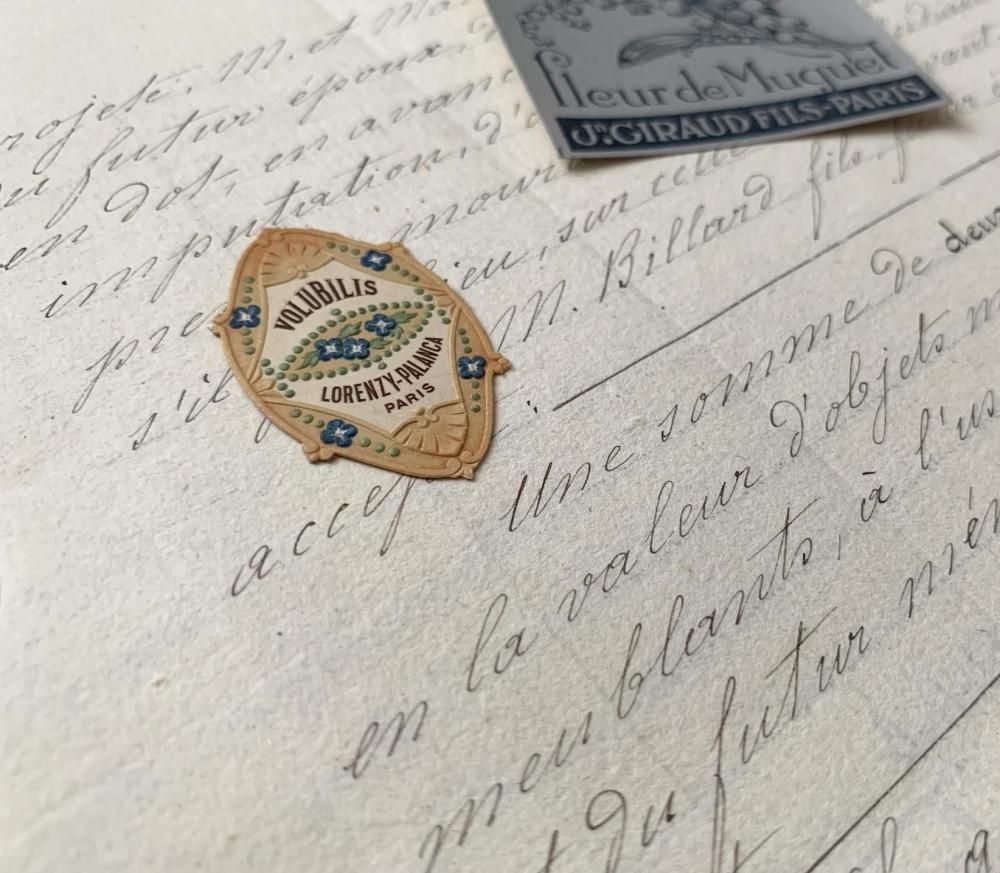 Fleur de Muguet
Jn. GIRAUD FILS-PARIS
VOLUBILIS
LORENZY-PALANCA
PARIS
projeté, M. et
du futur époux,
en dot, en avan
imputation, d'
mour
pr ieu, sur cette
s'il M. Billard fils,
accep
Une somme de deux
en la valeur d'objets
meublants, à l'us
et du futur mén